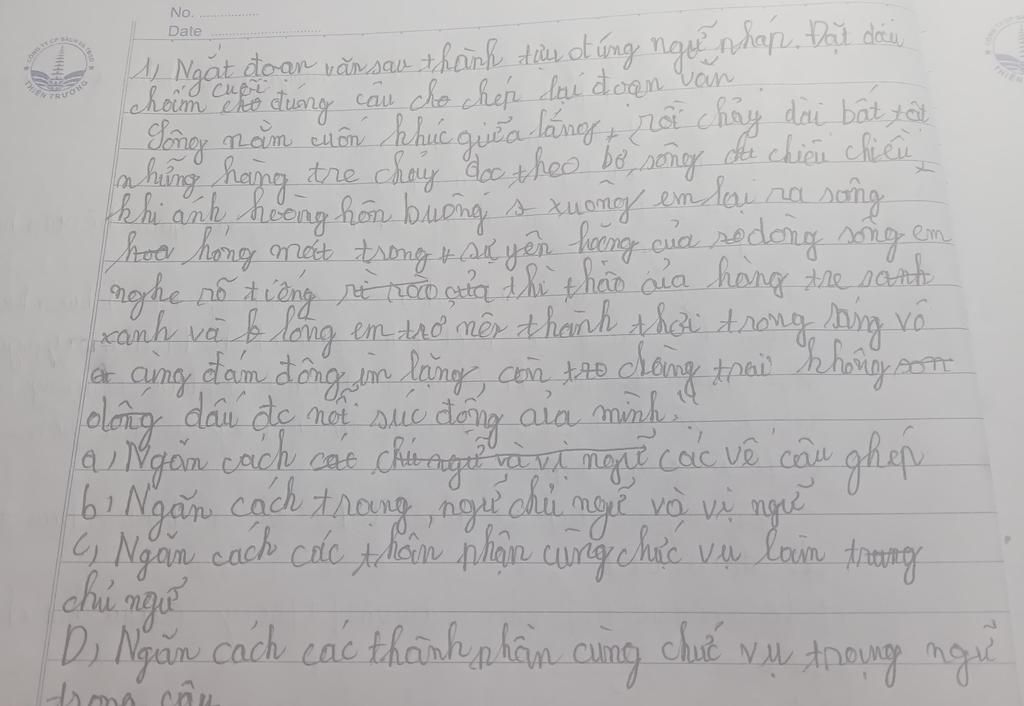 No. ................
Date ..............................
CÔNG TY CP SÁCH
THIÊN TRƯỜNG
1, Ngắt đoạn văn sau thành từng câu đúng ngữ pháp. Đặt dấu
cuối
chấm cho đúng câu cho chép lại đoạn văn
Sông nằm cuốn khúc giữa làng, rồi chảy dài bất tận
những hàng tre chảy dọc theo bờ sông chiều chiều
khi ánh hoàng hôn buông xuống em lại ra sông
hóng mát trong sự yên lặng của dòng sông em
nghe rõ tiếng thì thào của hàng tre
xanh và lòng em trở nên thảnh thơi trong sáng vô
cùng đám đông im lặng, còn chàng trai không
dấu đc nổi xúc động của mình."
a, Ngăn cách các chủ ngữ và vị ngữ các vế câu ghép
b, Ngăn cách trạng ngữ chủ ngữ và vị ngữ
C, Ngăn cách các thân phận cùng chức vụ làm trang
chủ ngữ
D, Ngăn cách các thành phần cùng chức vụ trạng ngữ
trong câu